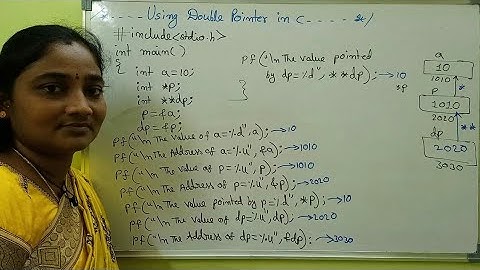 /*.....Using Double Pointer in C.....*/
#include<stdio.h>
int main( )
{
int a=10;
int *p;
int **dp;
p=&a;
dp=&p;
pf("\n The Value of a=%d",a); →10
pf("\n The Address of a=%u", &a); →1010
pf("\n The value of p=%u", p); →1010
pf("\n The Address of p=%u", &p); →2020
pf("\n The value pointed by p=%d", *p); →10
pf("\n The value of dp=%u", dp); →2020
pf("\n The Address of dp=%u", &dp); →3030
pf("\n The value pointed
by dp=%d", **dp); →10
}
a
10
1010
*
*p
p
1010
2020
**
dp
2020
3030